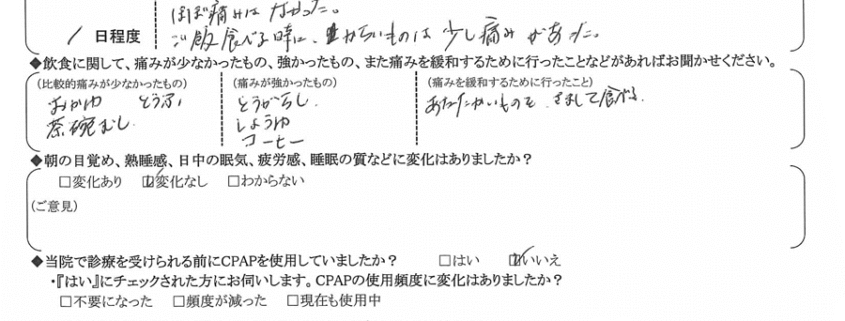 ほぼ痛みはなかった。
1 日程度 ご飯食べる時に、からいものは少し痛みがあった。
◆飲食に関して、痛みが少なかったもの、強かったもの、また痛みを緩和するために行ったことなどがあればお聞かせください。
(比較的痛みが少なかったもの) (痛みが強かったもの) (痛みを緩和するために行ったこと)
おかゆ とうふ、 とうがらし. あたたかいものを、さまして食べる.
茶碗むし. しょうゆ
コーヒー
◆朝の目覚め、熟睡感、日中の眠気、疲労感、睡眠の質などに変化はありましたか？
□変化あり ☑変化なし □わからない
(ご意見)
◆当院で診療を受けられる前にCPAPを使用していましたか？ □はい ☑いいえ
・『はい』にチェックされた方にお伺いします。CPAPの使用頻度に変化はありましたか？
□不要になった □頻度が減った □現在も使用中